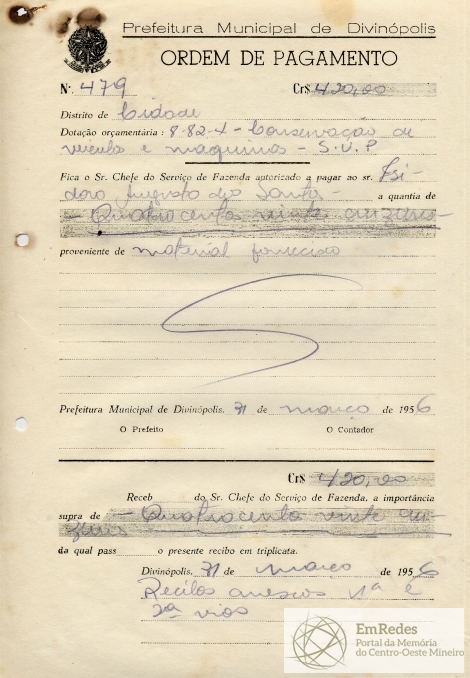 Prefeitura Municipal de Divinópolis
ORDEM DE PAGAMENTO
N.º 479 Cr$ 420,00
Distrito de Cidade
Dotação orçamentária : 8-82-4 - Conservação de
veiculo e maquinas - S.V.P
Fica o Sr. Chefe do Serviço de Fazenda autorizado a pagar ao sr. Isi-
doro Augusto dos Santos - a quantia de
- Quatrocentos vinte cruzeiros -
proveniente de material fornecido
Prefeitura Municipal de Divinópolis, 31 de março de 1956
O Prefeito O Contador
Cr$ 420,00
Receb do Sr. Chefe do Serviço de Fazenda, a importância
supra de - Quatrocentos vinte cru-
zeiros
da qual pass o presente recibo em triplicata.
Divinópolis, 31 de março de 1956
Recibos anexos 1ª e
2ª vias
EmRedes
Portal da Memória
do Centro-Oeste Mineiro